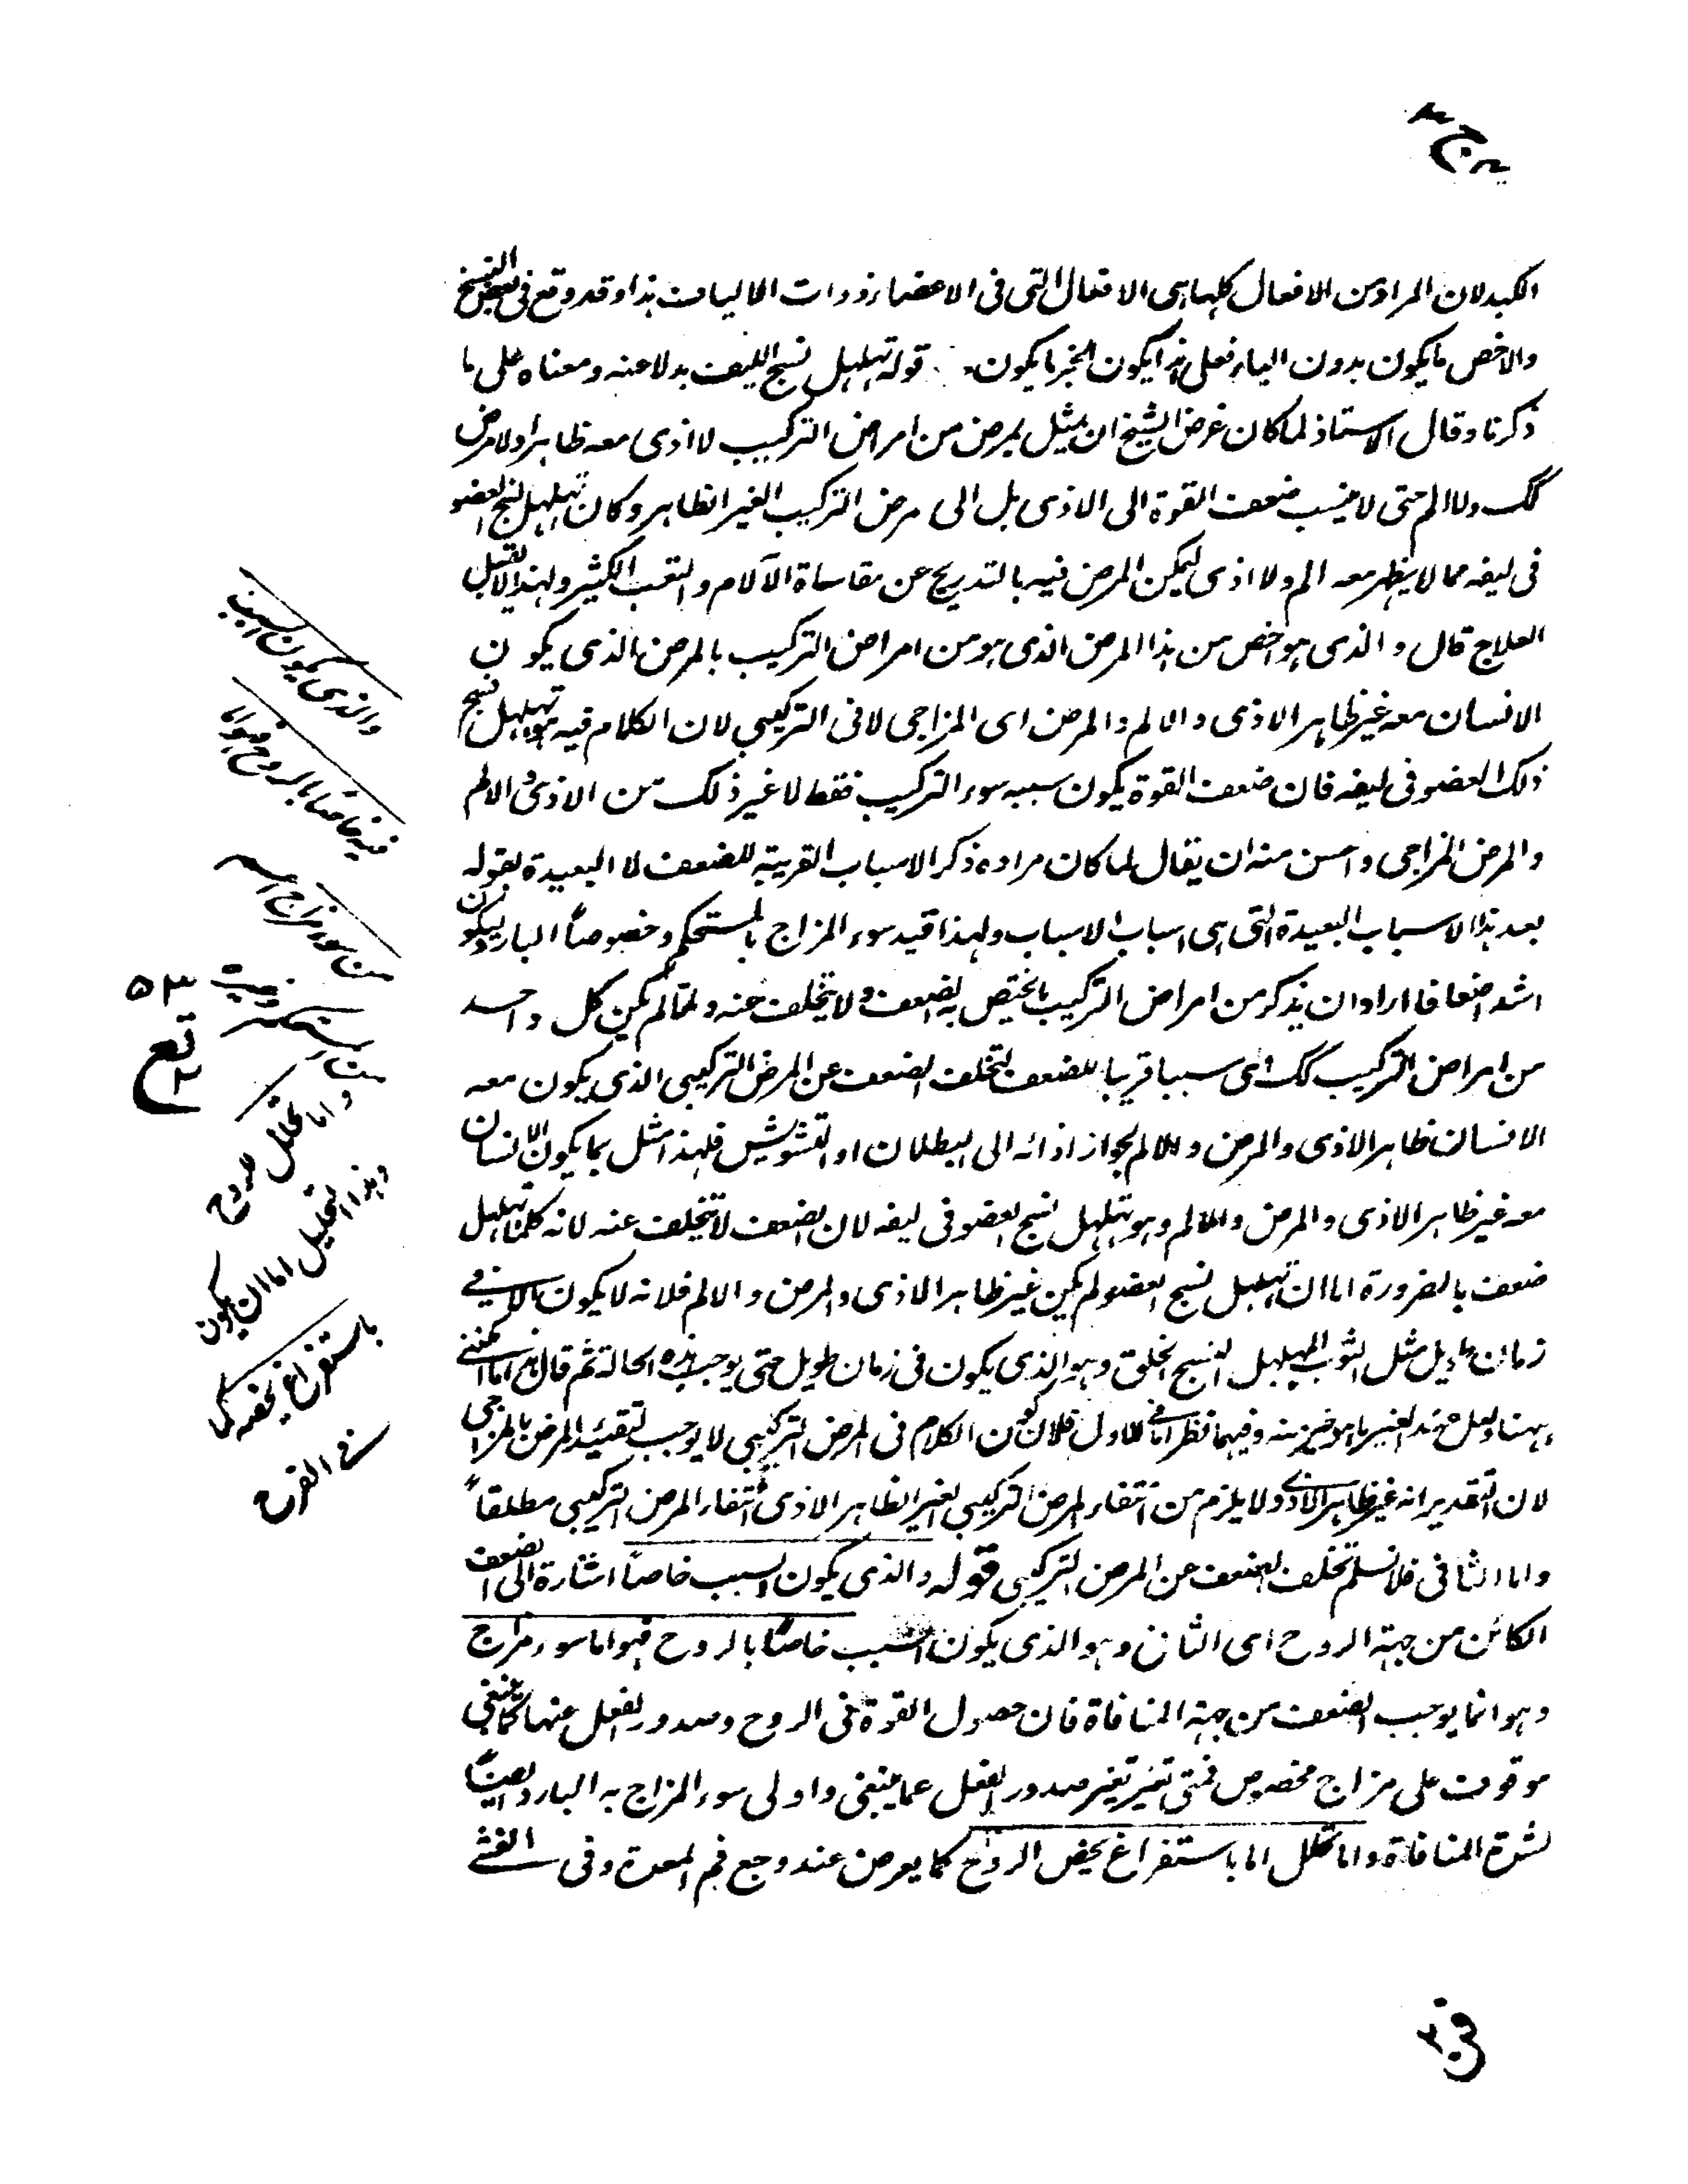 الكبد لان المراد من الافعال كلها هى الافعال التى فى الاعضاء ذوات الاليات هذا وقد وقع فى بعض النسخ
والاخص ما يكون بدون الياء فعلى هذا يكون الخبر ما يكون قوله تهلهل نسج الليف بدلا عنه ومعناه على ما
ذكرنا وقال الاستاذ لما كان غرض الشيخ ان يمثل بمرض من امراض التركيب لا اذى معه ظاهرا ولا مرض
كك ولا الم حتى لا ينسب ضعف القوة الى الاذى بل الى مرض التركيب الغير الظاهر وكان تهلهل نسج العضو
فى ليفه مما لا يظهر معه الم ولا اذى ليمكن المرض فيه بالتدريج عن مقاساة الآلام والتعب الكثير ولهذا لا يقبل
العلاج قال والذى هو اخص من هذا المرض الذى هو من امراض التركيب بالمرض الذى يكون
الانسان معه غير ظاهر الاذى والالم والمرض اى المزاجى لا فى التركيبى لان الكلام فيه هو تهلهل نسج
ذلك العضو فى ليفه فان ضعف القوة يكون سببه سوء التركيب فقط لا غير ذلك من الاذى والالم
والمرض المزاجى واحسن منه ان يقال لما كان مراده ذكر الاسباب القريبة للضعف لا البعيدة لقوله
بعد هذا الاسباب البعيدة التى هى اسباب الاسباب ولهذا قيد سوء المزاج بالمستحكم وخصوصاً البارد ليكون
اشد اضعافا اراد ان يذكر من امراض التركيب ما يختص به الضعف ولا يتخلف عنه ولما لم يكن كل واحد
من امراض التركيب كك اى سببا قريبا للضعف لتخلف الضعف عن المرض التركيبى الذى يكون معه
الانسان ظاهر الاذى والمرض والالم لجواز اذائه الى البطلان او التشويش فلهذا مثل بما يكون الانسان
معه غير ظاهر الاذى والمرض والالم وهو تهلهل نسج العضو فى ليفه لان الضعف لا يتخلف عنه لانه كلما تهلهل
ضعف بالضرورة اما ان تهلهل نسج العضو لم يكن غير ظاهر الاذى والمرض والالم فلانه لا يكون الا فى
زمان طويل مثل الثوب المهلهل النسج الخلق وهو الذى يكون فى زمان طويل حتى يوجب هذه الحالة ثم قال هذا ما امكننى
ههنا ولعل عند الغير ما هو خير منه وفيهما نظر اما فى الاول فلان كون الكلام فى المرض التركيبى لا يوجب تقييد المرض بالمزاجى
لان التقدير انه غير ظاهر الاذى ولا يلزم من انتفاء المرض التركيبى الغير الظاهر الاذى انتفاء المرض التركيبى مطلقاً
واما الثانى فلا نسلم تخلف الضعف عن المرض التركيبى قوله والذى يكون السبب خاصاً اشارة الى الضعف
الكائن من جهة الروح اى الثانى وهو الذى يكون السبب خاصاً بالروح فهو اما سوء مزاج
وهو انما يوجب الضعف من جهة المنافاة فان حصول القوة فى الروح وصدور الفعل عنها كما ينبغى
موقوف على مزاج مخصوص فمتى تغير تغير صدور الفعل عما ينبغى واولى سوء المزاج به البارد ايضاً
لشدة المنافاة واما تحلل اما باستفراغ يخص الروح كما يعرض عند وجع فم المعدة وفى الغشى
والذى يكون السبب
فيه خاصا بالروح فهو اما
من سوء مزاج
۵۳
واما تحلل روح
وهذا التحليل اما ان يكون
باستفراغ يخصه كما
فى الفرح